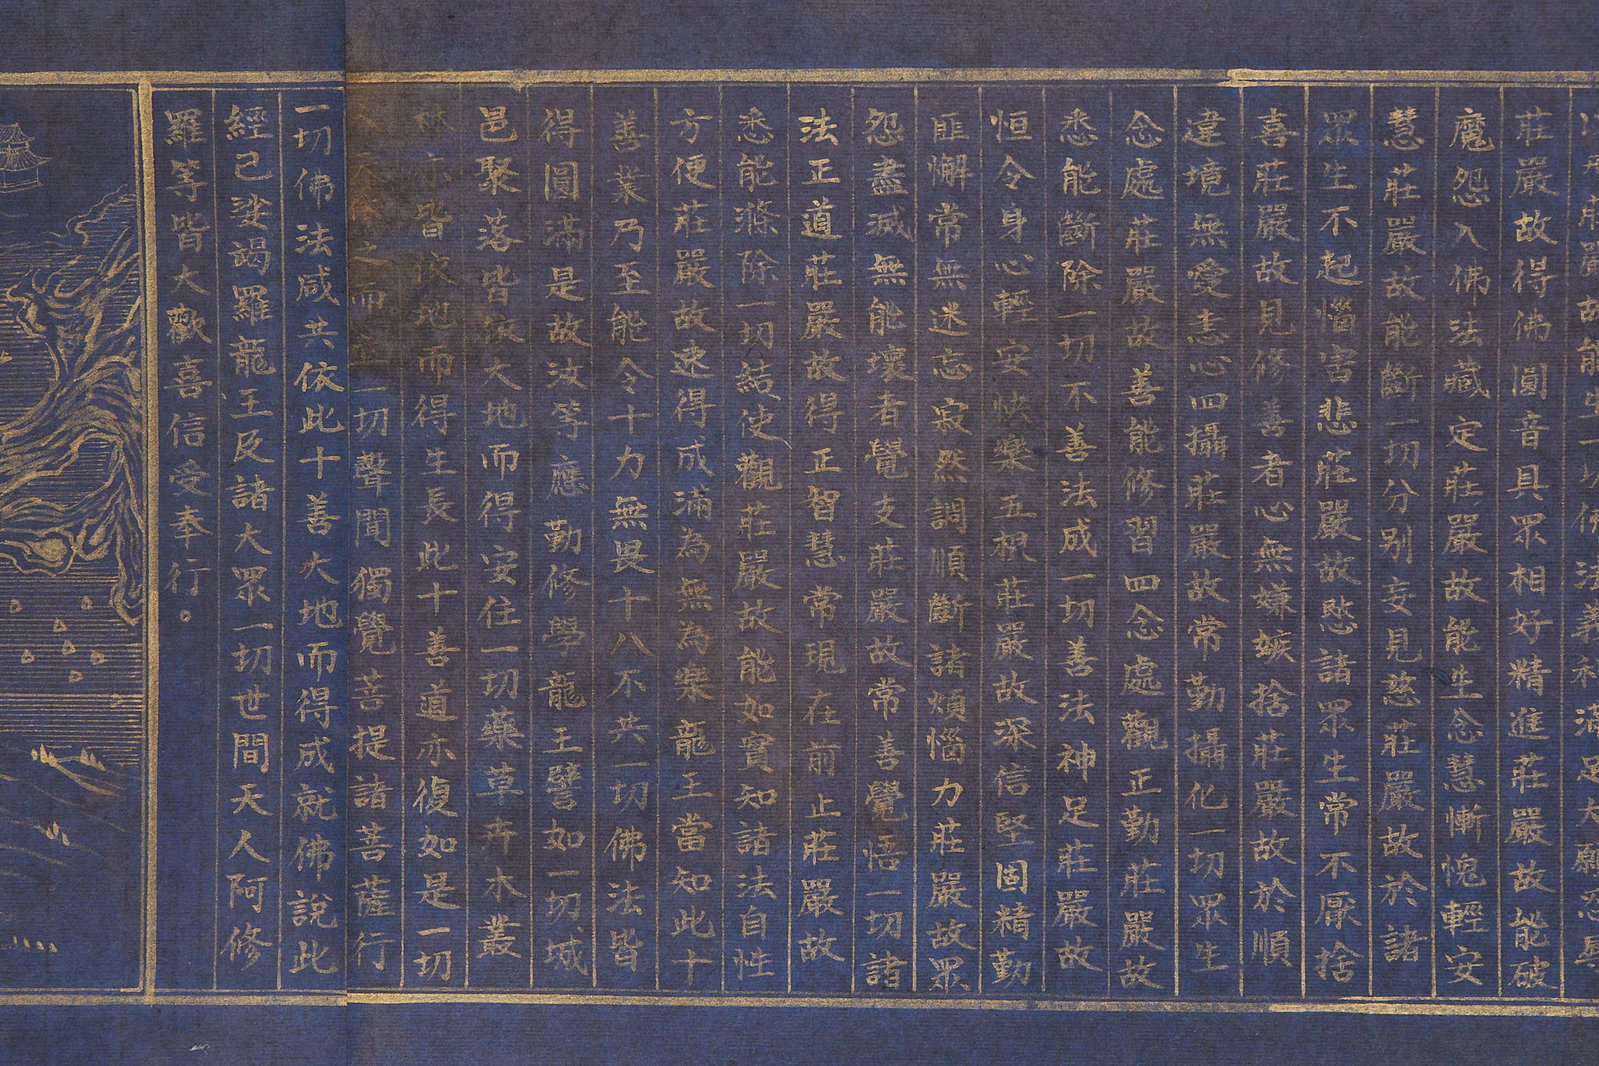 莊嚴故能生一切佛法義利滿足大願忍辱
莊嚴故得佛圓音具眾相好精進莊嚴故能破
魔怨入佛法藏定莊嚴故能生念慧慚愧輕安
慧莊嚴故能斷一切分別妄見慈莊嚴故於諸
眾生不起惱害悲莊嚴故愍諸眾生常不厭捨
喜莊嚴故見修善者心無嫌嫉捨莊嚴故於順
違境無愛恚心四攝莊嚴故常勤攝化一切眾生
念處莊嚴故善能修習四念處觀正勤莊嚴故
悉能斷除一切不善法成一切善法神足莊嚴故
恒令身心輕安快樂五根莊嚴故深信堅固精勤
匪懈常無迷忘寂然調順斷諸煩惱力莊嚴故眾
怨盡滅無能壞者覺支莊嚴故常善覺悟一切諸
法正道莊嚴故得正智慧常現在前止莊嚴故
悉能滌除一切結使觀莊嚴故能如實知諸法自性
方便莊嚴故速得成滿為無為樂龍王當知此十
善業乃至能令十力無畏十八不共一切佛法皆
得圓滿是故汝等應勤修學龍王譬如一切城
邑聚落皆依大地而得安住一切藥草卉木叢
林亦皆依地而得生長此十善道亦復如是一切
之而一切聲聞獨覺菩提諸菩薩行
一切佛法咸共依此十善大地而得成就佛說此
經已娑竭羅龍王及諸大眾一切世間天人阿修
羅等皆大歡喜信受奉行。